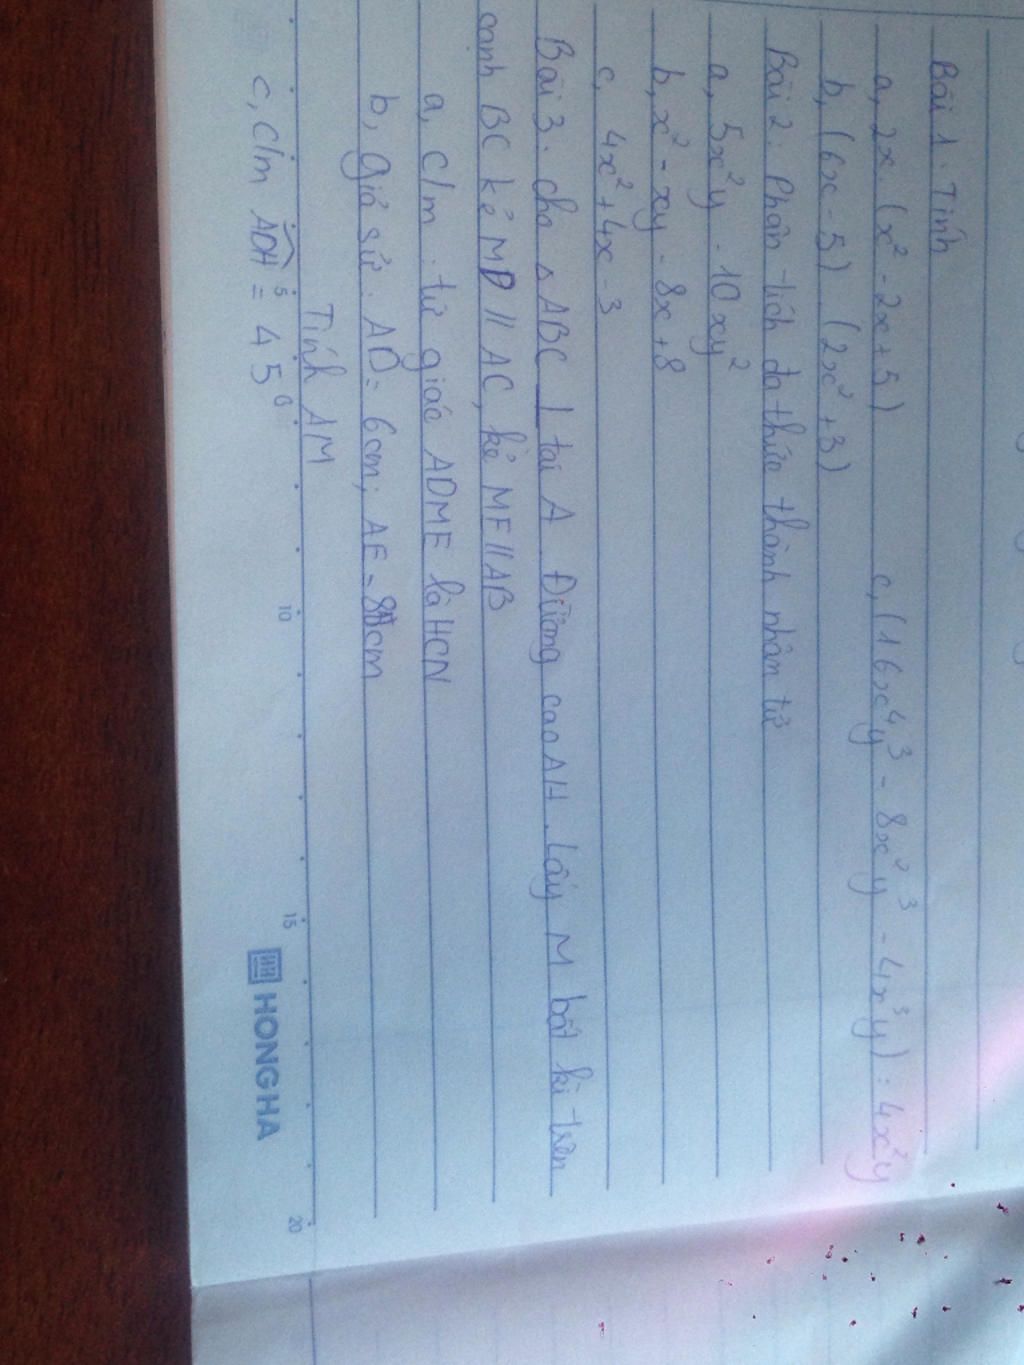 Bài 1. Tính
a, 2x. (x² - 2x + 5) c, (16x⁴y³ - 8x²y³ - 4x³y) : 4x²y
b, (6x - 5). (2x² + 3)
Bài 2: Phân tích đa thức thành nhân tử
a, 5x²y - 10xy²
b, x² - xy - 8x + 8
c, 4x² + 4x - 3
Bài 3. cho △ ABC ⊥ tại A. Đường cao AH. Lấy M bất kì trên
cạnh BC kẻ MD // AC, kẻ ME // AB
a, C/m . tứ giác ADME là HCN
b, giả sử. AD = 6cm; AE = 8cm
Tính AM
c, C/m ADH = 45
5 6 10 15 20
HONG HA